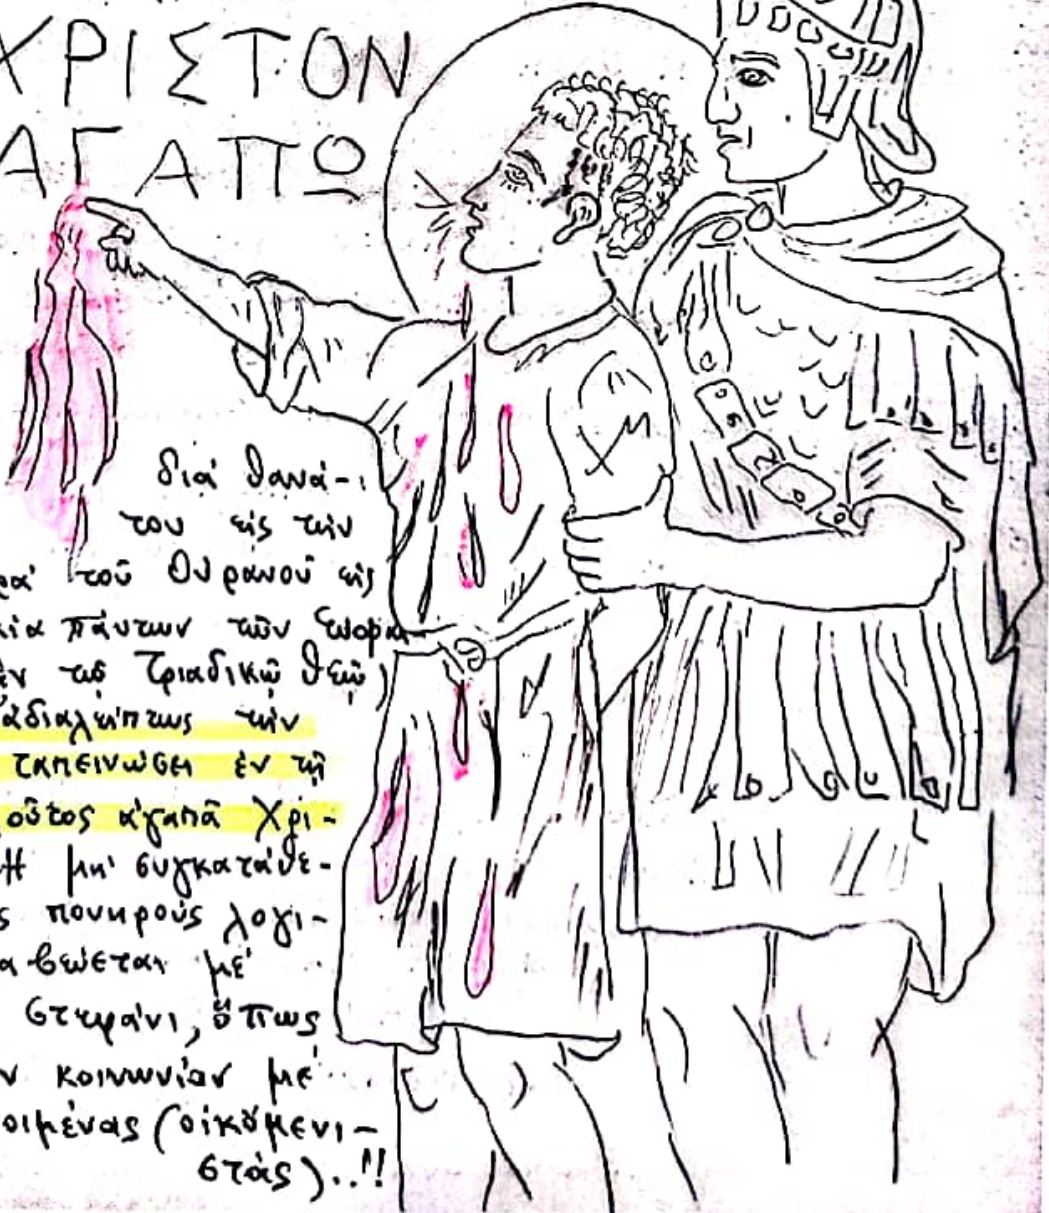 ΧΡΙΣΤΟΝ
ΑΓΑΠΩ
διά θανά-
του εἰς τήν
τοῦ Οὐρανοῦ εἰς
πάντων τῶν
τῷ Τριαδικῷ Θεῷ)
ἀδιαλείπτως τήν
ταπεινώσει ἐν τῇ
οὗτος ἀγαπᾶ Χρι-
Ἡ μή συγκατάθε-
πονηρούς λογι-
με
στεφάνι, ὅπως
κοινωνίαν μέ
οιμένας (οἰκουμενι-
στάς)..!!